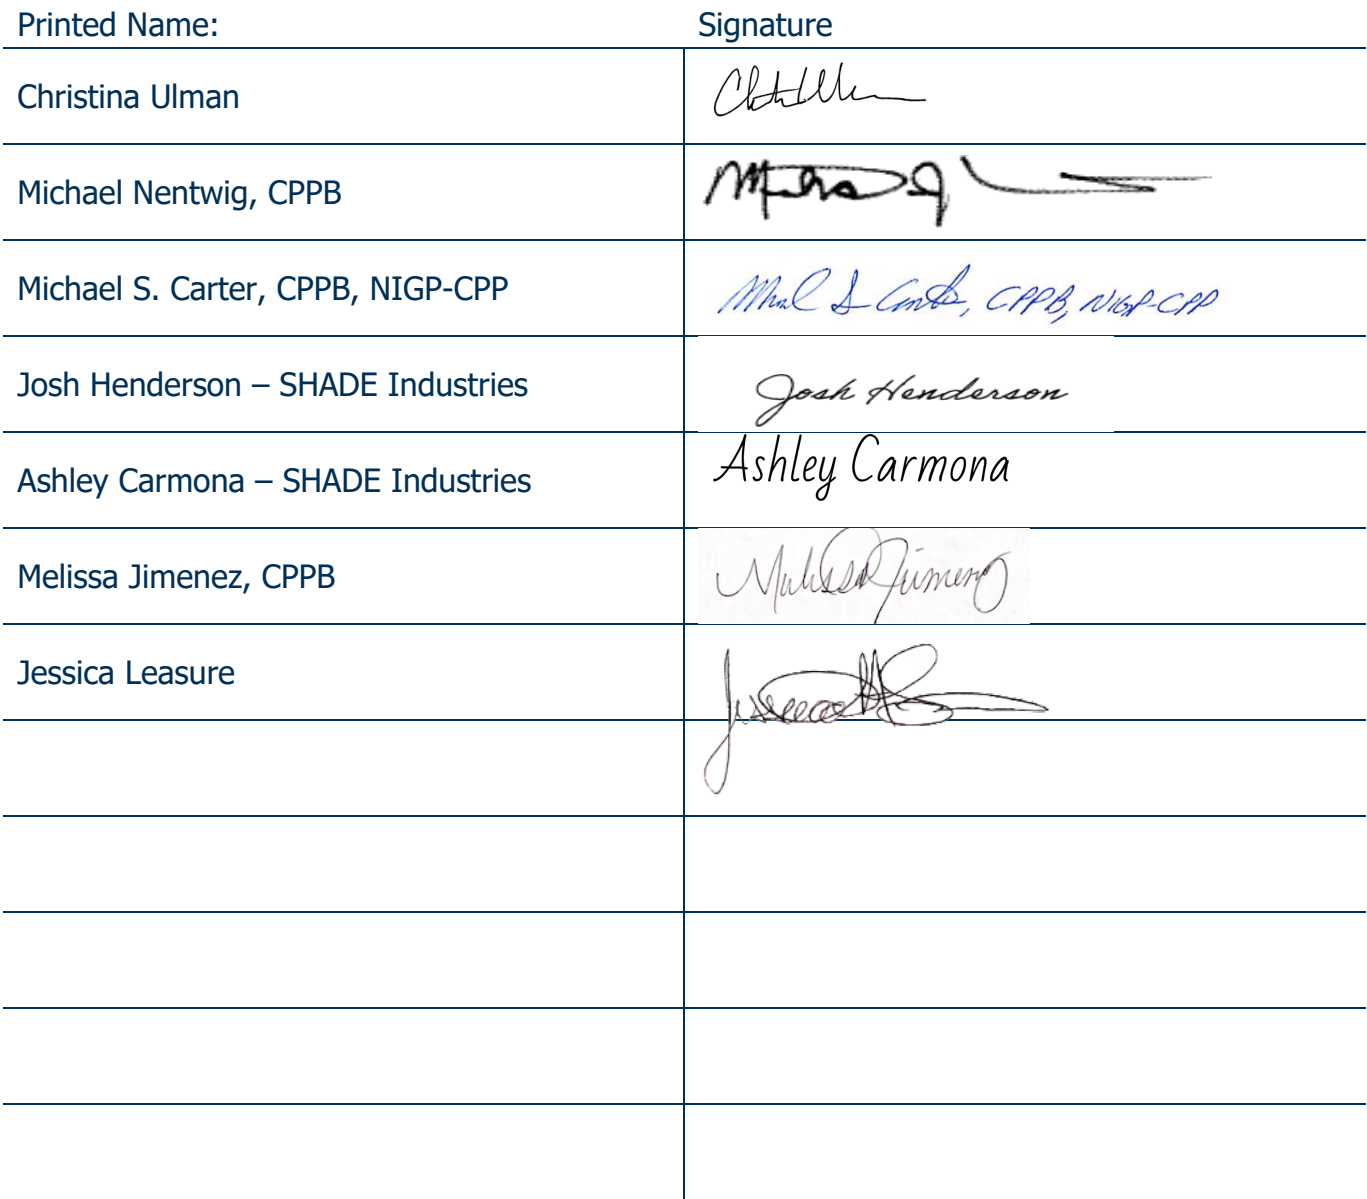 Printed Name: Signature
Christina Ulman
Michael Nentwig, CPPB
Michael S. Carter, CPPB, NIGP-CPP Carter, CPPB, NIGP-CPP
Josh Henderson – SHADE Industries Josh Henderson
Ashley Carmona – SHADE Industries Ashley Carmona
Melissa Jimenez, CPPB Melissa Jimenez
Jessica Leasure Jessica